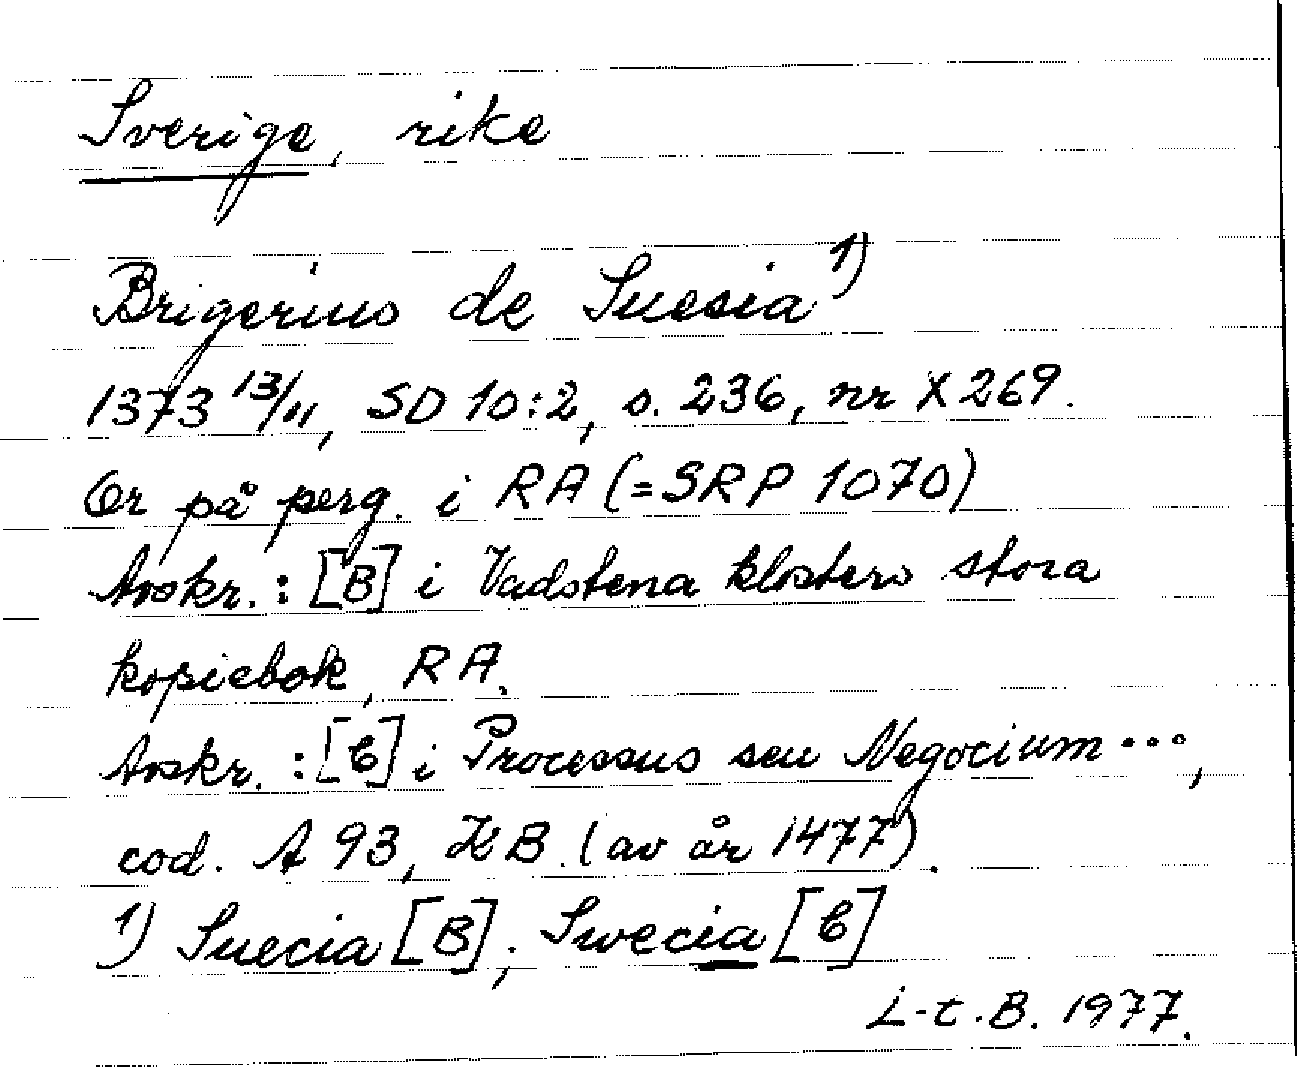 Sverige, rike
Brigerius de Suesia 1)
1373 13/11, SD 10:2, s. 236, nr X 269.
Or på perg. i RA (=SRP 1070)
Avskr.: [B] i Vadstena klosters stora
kopiebok, RA.
Avskr.: [C] i Processus seu Negocium...,
cod. A 93, KB. (av år 1477).
1) Suecia [B]; Swecia [C]
L-t.B. 1977.